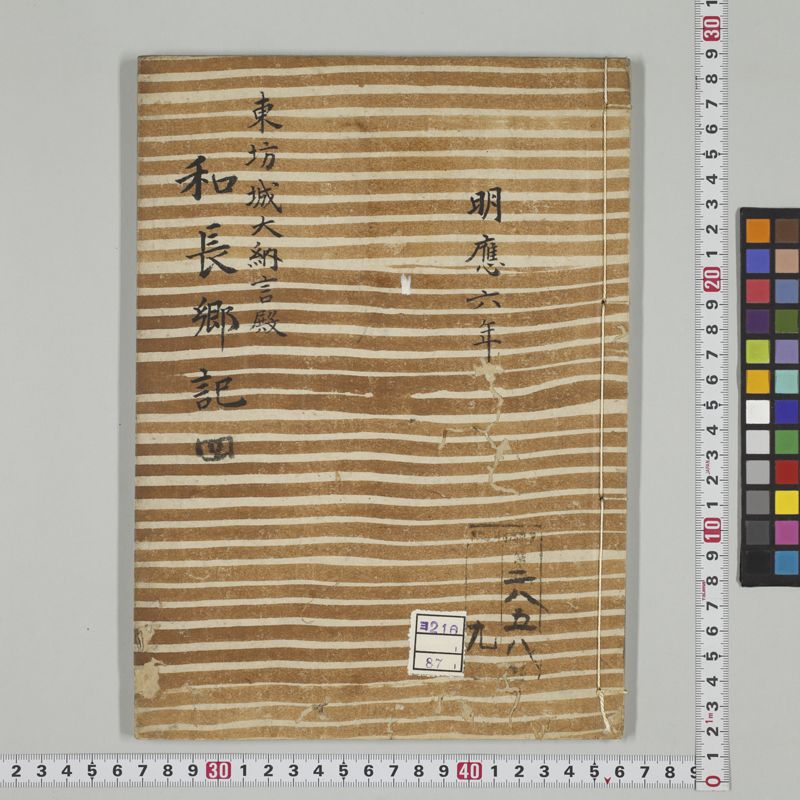 明應六年
東坊城大納言殿
和長卿記 四
二八五八
九
ヨ21A
87
2 3 4 5 6 7 8 9 30 1 2 3 4 5 6 7 8 9 40 1 2 3 4 5 6 7 8 9
1 30 9 8 7 6 5 4 3 2 1 20 9 8 7 6 5 4 3 2 1 10 9 8 7 6 5 4 3 2 1 0
JAPAN
1m